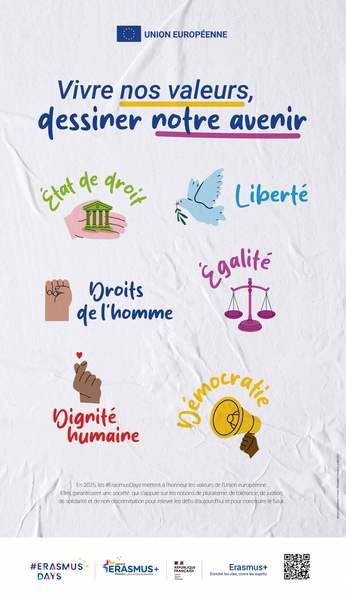 UNION EUROPÉENNE
Vivre nos valeurs,
dessiner notre avenir
État de droit
Liberté
Droits
de l'homme
Égalité
Dignité
humaine
Démocratie
En 2025, les #ErasmusDays mettent à l'honneur les valeurs de l'Union européenne.
Elles garantissent une société qui s'appuie sur les notions de pluralisme, de tolérance, de justice,
de solidarité et de non discrimination pour relever les défis d'aujourd'hui et pour construire le futur.
#ERASMUS
DAYS
ERASMUS+
FRANCE
RÉPUBLIQUE
FRANÇAISE
Erasmus+
Enrichit les vies, ouvre les esprits.